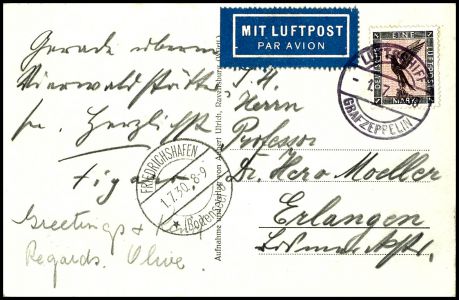 MIT LUFTPOST
PAR AVION
EINE
MARK
LUFTSCHIFF
GRAF ZEPPELIN
Gerade überm
Vierwaldstätter
Herzlichst
Figaro
Greetings &
Regards. Olive.
FRIEDRICHSHAFEN
1.7.30. 8-9
(Bodensee)
Aufnahme und Verlag von Albert Ulrich, Ravensburg (Württ.)
S. H.
Herrn
Professor
Dr. Hero Moeller
Erlangen